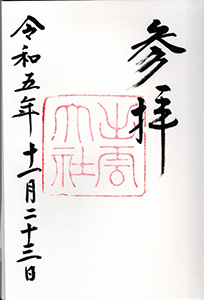 参拝
出雲
大社
令和五年十一月二十三日